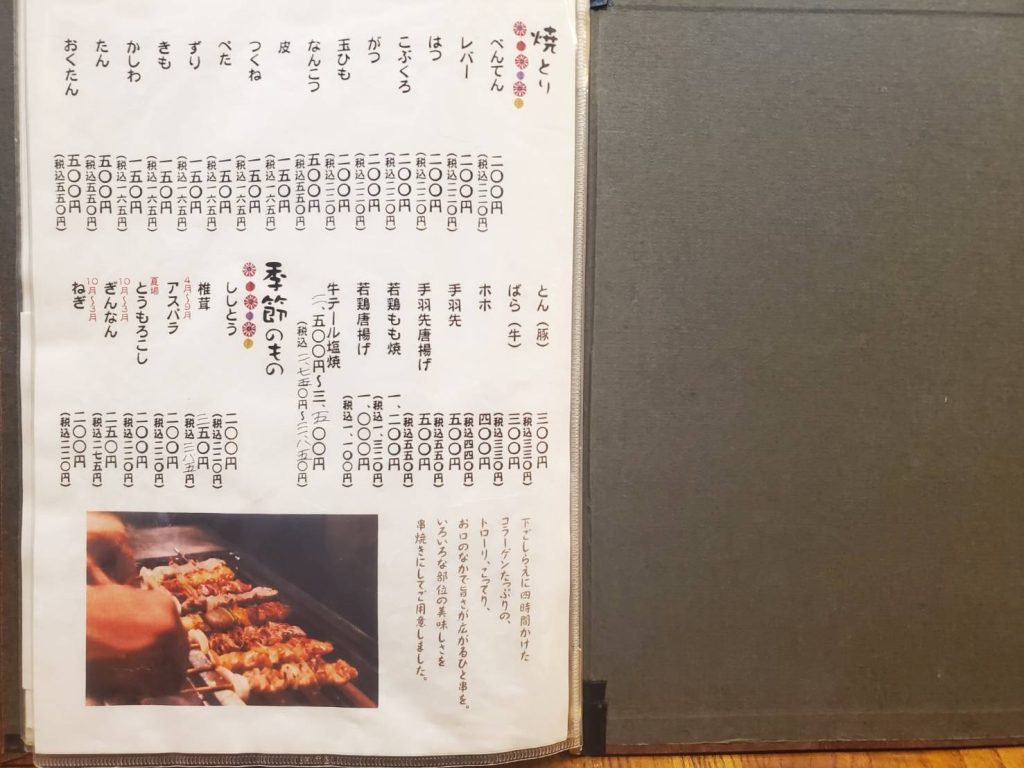 焼とり
べんてん 二〇〇円
（税込二二〇円）
レバー 二〇〇円
（税込二二〇円）
はつ 二〇〇円
（税込二二〇円）
こぶくろ 二〇〇円
（税込二二〇円）
がつ 二〇〇円
（税込二二〇円）
玉ひも 二〇〇円
（税込二二〇円）
なんこつ 五〇〇円
（税込五五〇円）
皮 一五〇円
（税込一六五円）
つくね 一五〇円
（税込一六五円）
べた 一五〇円
（税込一六五円）
ずり 一五〇円
（税込一六五円）
きも 一五〇円
（税込一六五円）
かしわ 一五〇円
（税込一六五円）
たん 五〇〇円
（税込五五〇円）
おくたん 五〇〇円
（税込五五〇円）
とん（豚） 三〇〇円
（税込三三〇円）
ばら（牛） 三〇〇円
（税込三三〇円）
ホホ 四〇〇円
（税込四四〇円）
手羽先 五〇〇円
（税込五五〇円）
手羽先唐揚げ 五〇〇円
（税込五五〇円）
若鶏もも焼 一、二〇〇円
（税込一、三二〇円）
若鶏唐揚げ 一、〇〇〇円
（税込一、一〇〇円）
牛テール塩焼
五〇〇円〜三、五〇〇円
季節のもの
ししとう 二〇〇円
（税込二二〇円）
椎茸 三五〇円
（税込三八五円）
4月〜9月
アスパラ 二〇〇円
（税込二二〇円）
夏場
とうもろこし 二〇〇円
（税込二二〇円）
10月〜3月
ぎんなん 二五〇円
（税込二七五円）
10月〜3月
ねぎ 二〇〇円
（税込二二〇円）
下ごしらえに四時間かけた
コラーゲンたっぷりの、
トローリ、こってり、
お口のなかで旨さが広がるひと串を。
いろいろな部位の美味しさを
串焼きにしてご用意しました。